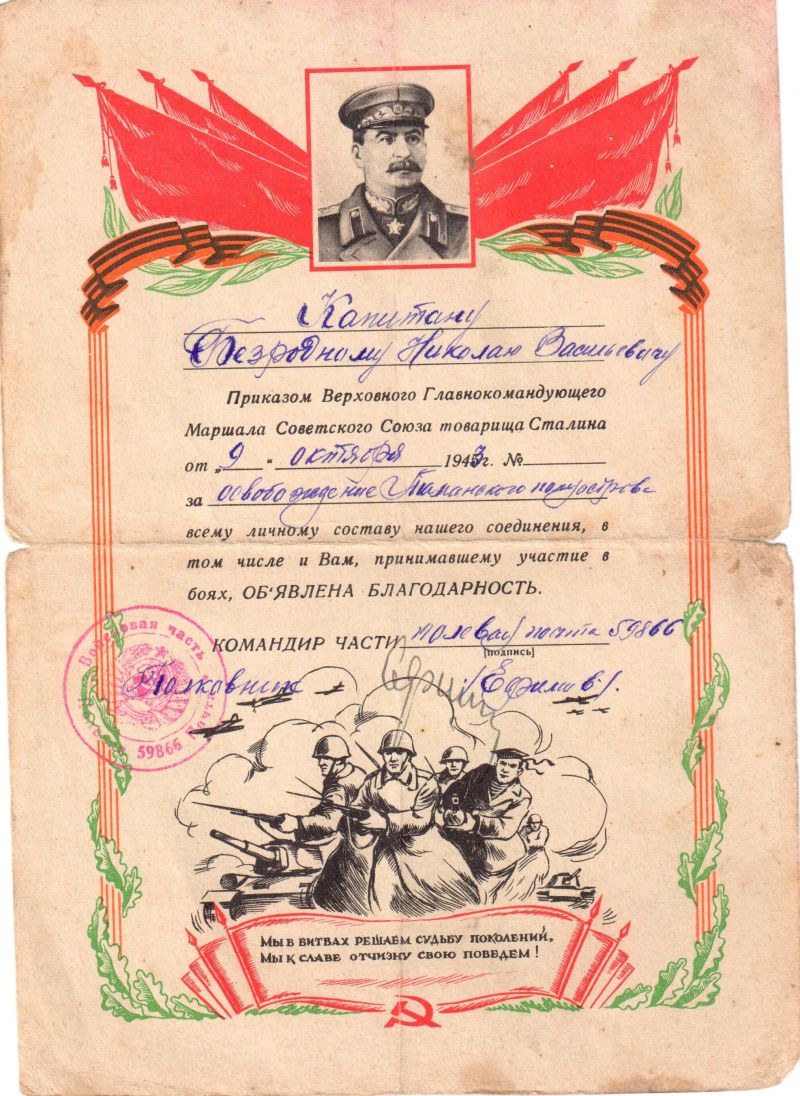 Капитану
Безродному Николаю Васильевичу
Приказом Верховного Главнокомандующего
Маршала Советского Союза товарища Сталина
от „9 " октября 1943г. №
за освобождение Таманского полуострова
всему личному составу нашего соединения, в
том числе и Вам, принимавшему участие в
боях, ОБ'ЯВЛЕНА БЛАГОДАРНОСТЬ.
КОМАНДИР ЧАСТИ полевая почта 59866
[подпись]
Полковник /Ефимов/.
Войсковая часть
59866
МЫ В БИТВАХ РЕШАЕМ СУДЬБУ ПОКОЛЕНИЙ,
МЫ К СЛАВЕ ОТЧИЗНУ СВОЮ ПОВЕДЕМ!